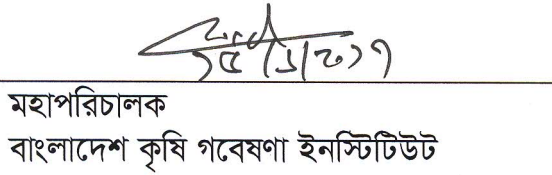 মহাপরিচালক
বাংলাদেশ কৃষি গবেষণা ইনস্টিটিউট